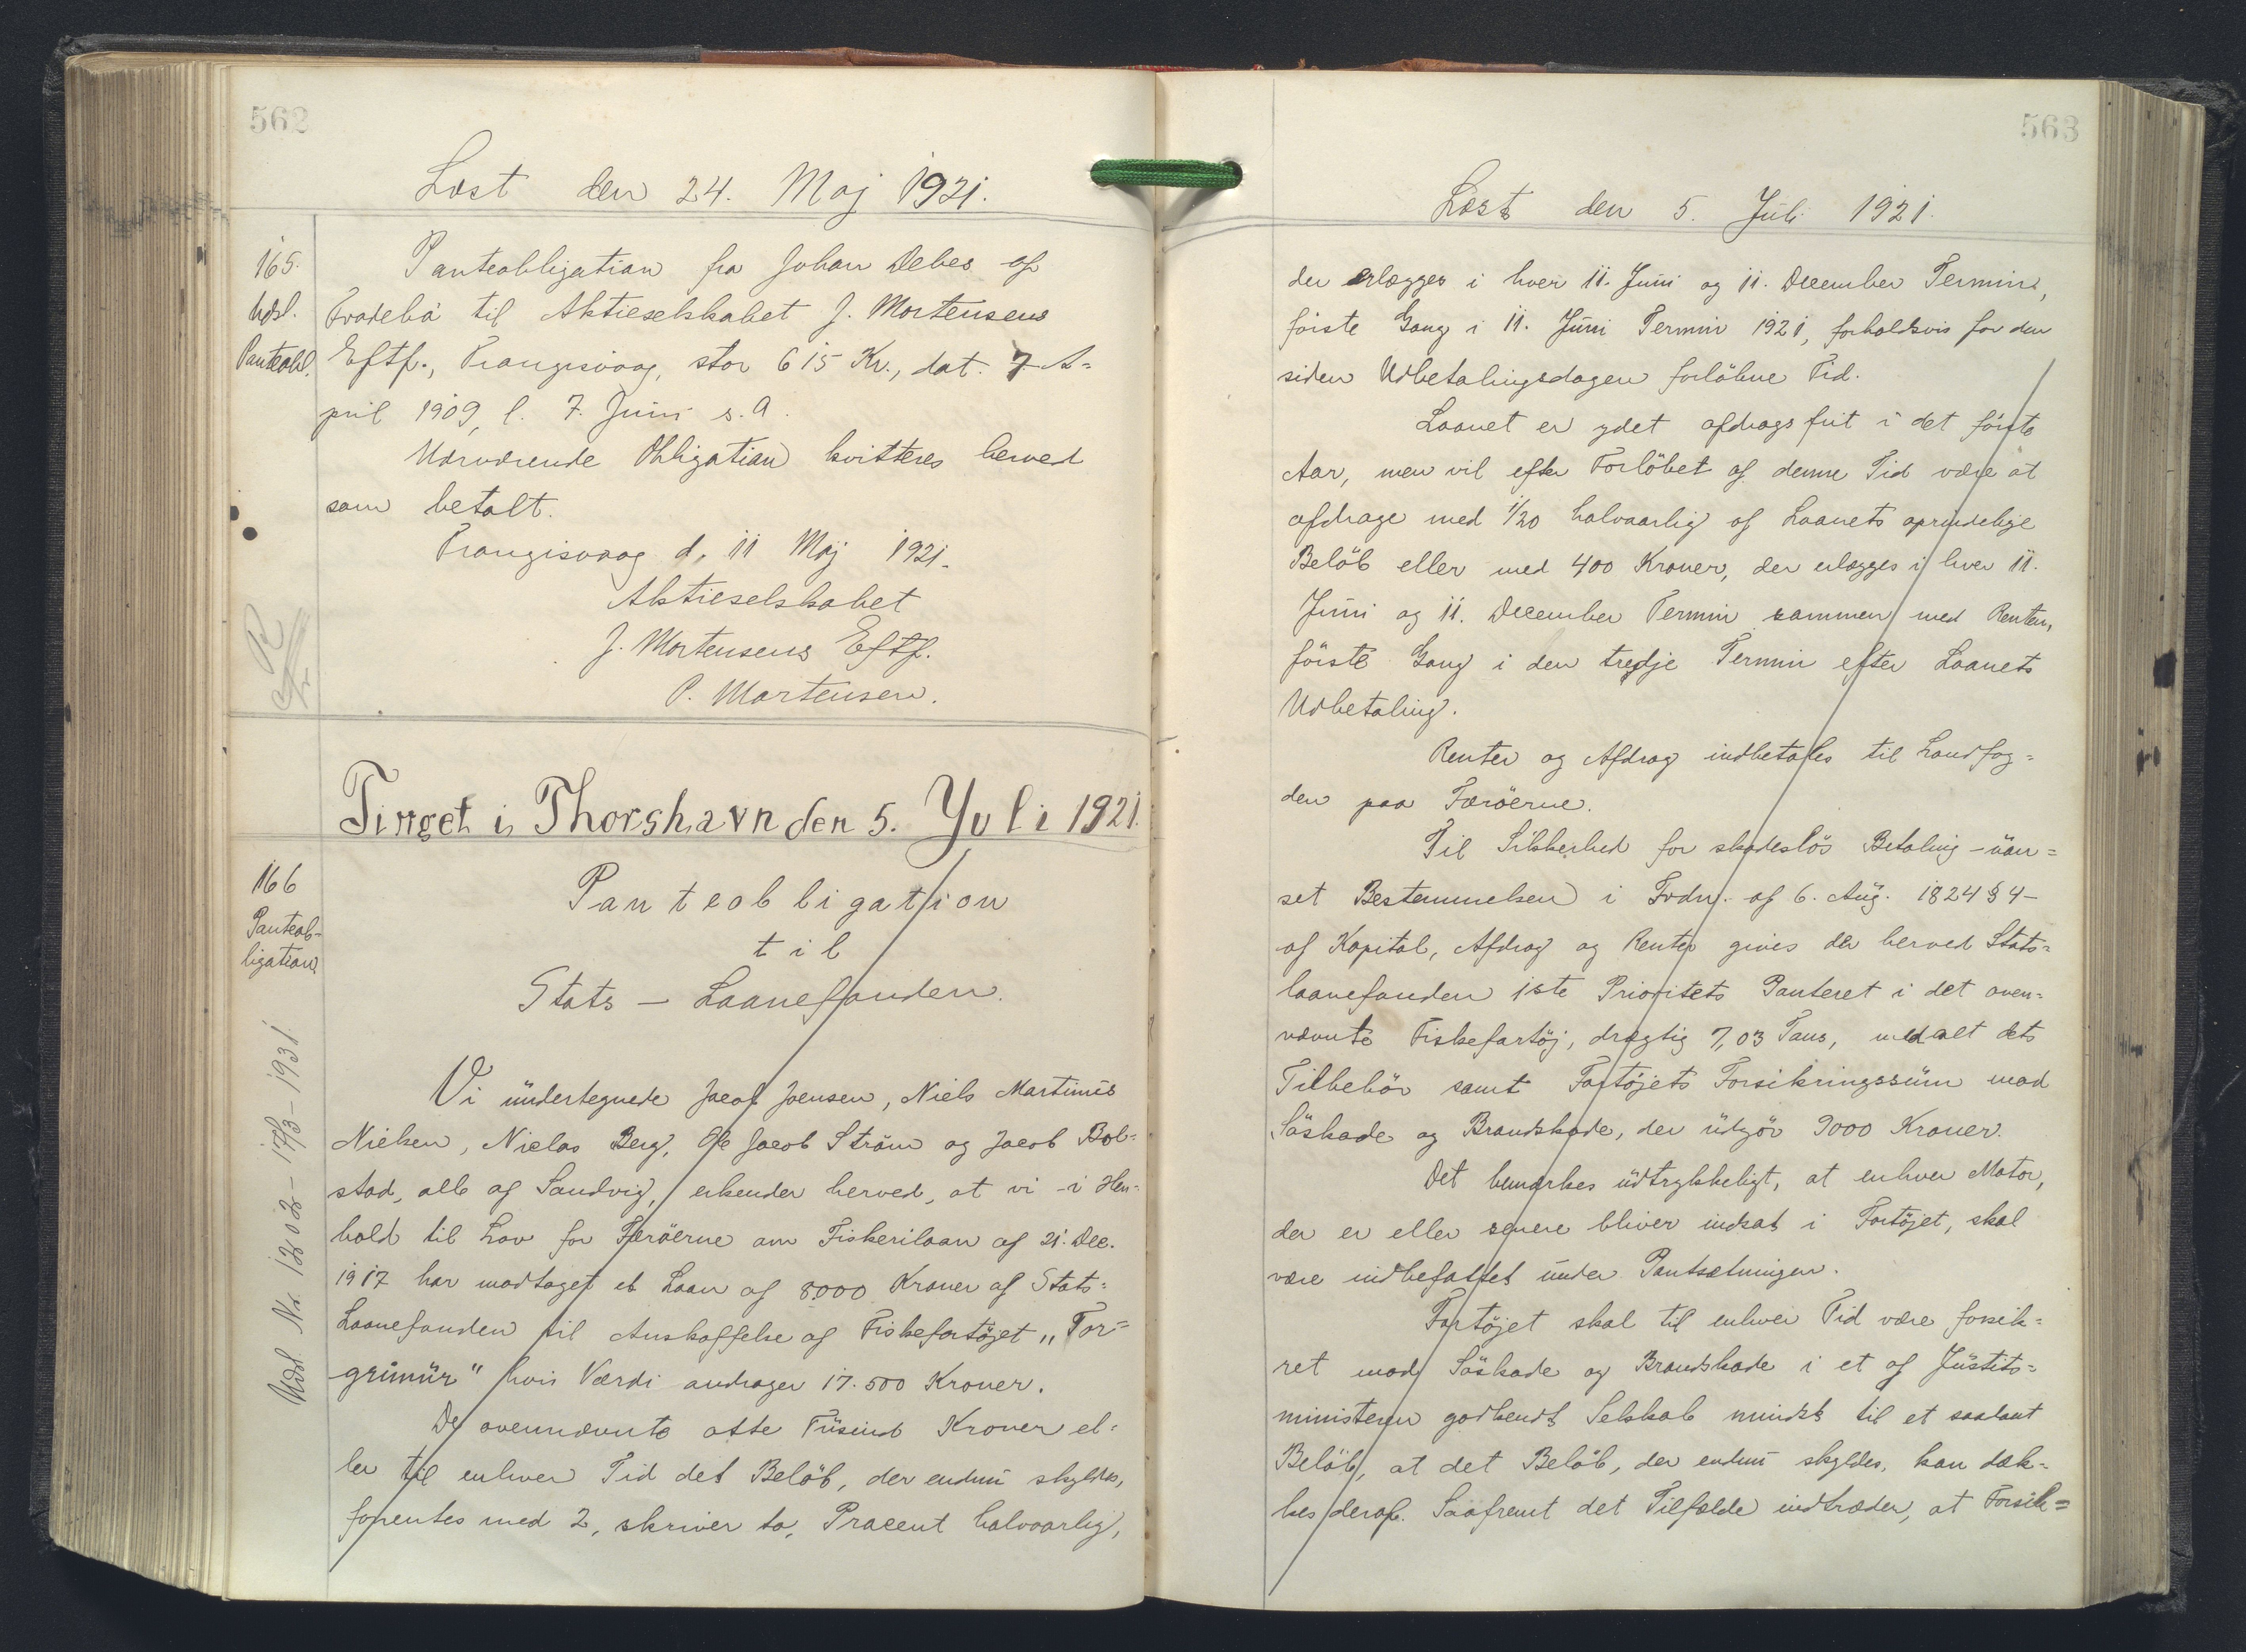 562
Læst den 24. Maj 1921.
165.
Udsl.
Panteobl.
Panteobligation fra Johan Debes af
Frodebå til Aktieselskabet J. Mortensens
Eftf., Trangisvaag, stor 615 Kr., dat. 7. A=
pril 1909, l. 7. Juni s. A.
Nærværende Obligation kvitteres herved
som betalt.
Trangisvaag d. 11 Maj 1921.
Aktieselskabet
J. Mortensens Eftf.
P. Mortensen.
Tinget i Thorshavn den 5. Juli 1921.
166
Panteob-
ligation.
Udsl. Nr. 1202 - 17/3 - 1931.
Panteobligation
til
Stats - Laanefonden.
Vi undertegnede Jacob Joensen, Niels Martinus
Nielsen, Niclas Berg, Ole Jacob Ström og Jacob Bol=
stad, alle af Sandvig, erkender herved, at vi - i Hen=
hold til Lov for Færöerne om Fiskerilaan af 21. Dec.
1917 har modtaget et Laan af 8000 Kroner af Stats=
Laanefonden til Anskaffelse af Fiskefartöjet „Tor=
grimur" hvis Værdi andrager 17.500 Kroner.
De ovennævnte otte Tusind Kroner el=
ler til enhver Tid det Belöb, der endnu skyldes,
forrentes med 2, skriver to, Procent halvaarlig,
563
Læst den 5. Juli 1921.
der erlægges i hver 11. Juni og 11. December Termin,
förste Gang i 11. Juni Termin 1921, forholdsvis for den
siden Udbetalingsdagen forlöbne Tid.
Laanet er ydet afdragsfrit i det förste
Aar, men vil efter Forlöbet af denne Tid være at
afdrage med 1/20 halvaarlig af Laanets oprindelige
Belöb eller med 400 Kroner, der erlægges i hver 11.
Juni og 11. December Termin sammen med Renten,
förste Gang i den tredje Termin efter Laanets
Udbetaling.
Renter og Afdrag indbetales til Landfog=
den paa Færöerne.
Til Sikkerhed for skadeslös Betaling - uan=
set Bestemmelsen i Frdn. af 6. Aug. 1824 § 4 -
af Kapital, Afdrag og Renter gives der herved Stats=
laanefonden 1ste Prioritets Panteret i det oven=
nævnte Fiskefartöj, drægtig 7,03 Tons, med alt dets
Tilbehör samt Fartöjets Forsikringssum mod
Söskade og Brandskade, der udgör 9000 Kroner.
Det bemærkes udtrykkeligt, at enhver Motor,
der er eller senere bliver indsat i Fartöjet, skal
være indbefattet under Pantsætningen.
Fartöjet skal til enhver Tid være forsik=
ret mod Söskade og Brandskade i et af Justits=
ministeren godkendt Selskab mindst til et saadant
Belöb, at det Belöb, der endnu skyldes, kan dæk=
kes deraf. Saafremt det Tilfælde indtræder, at Forsik=